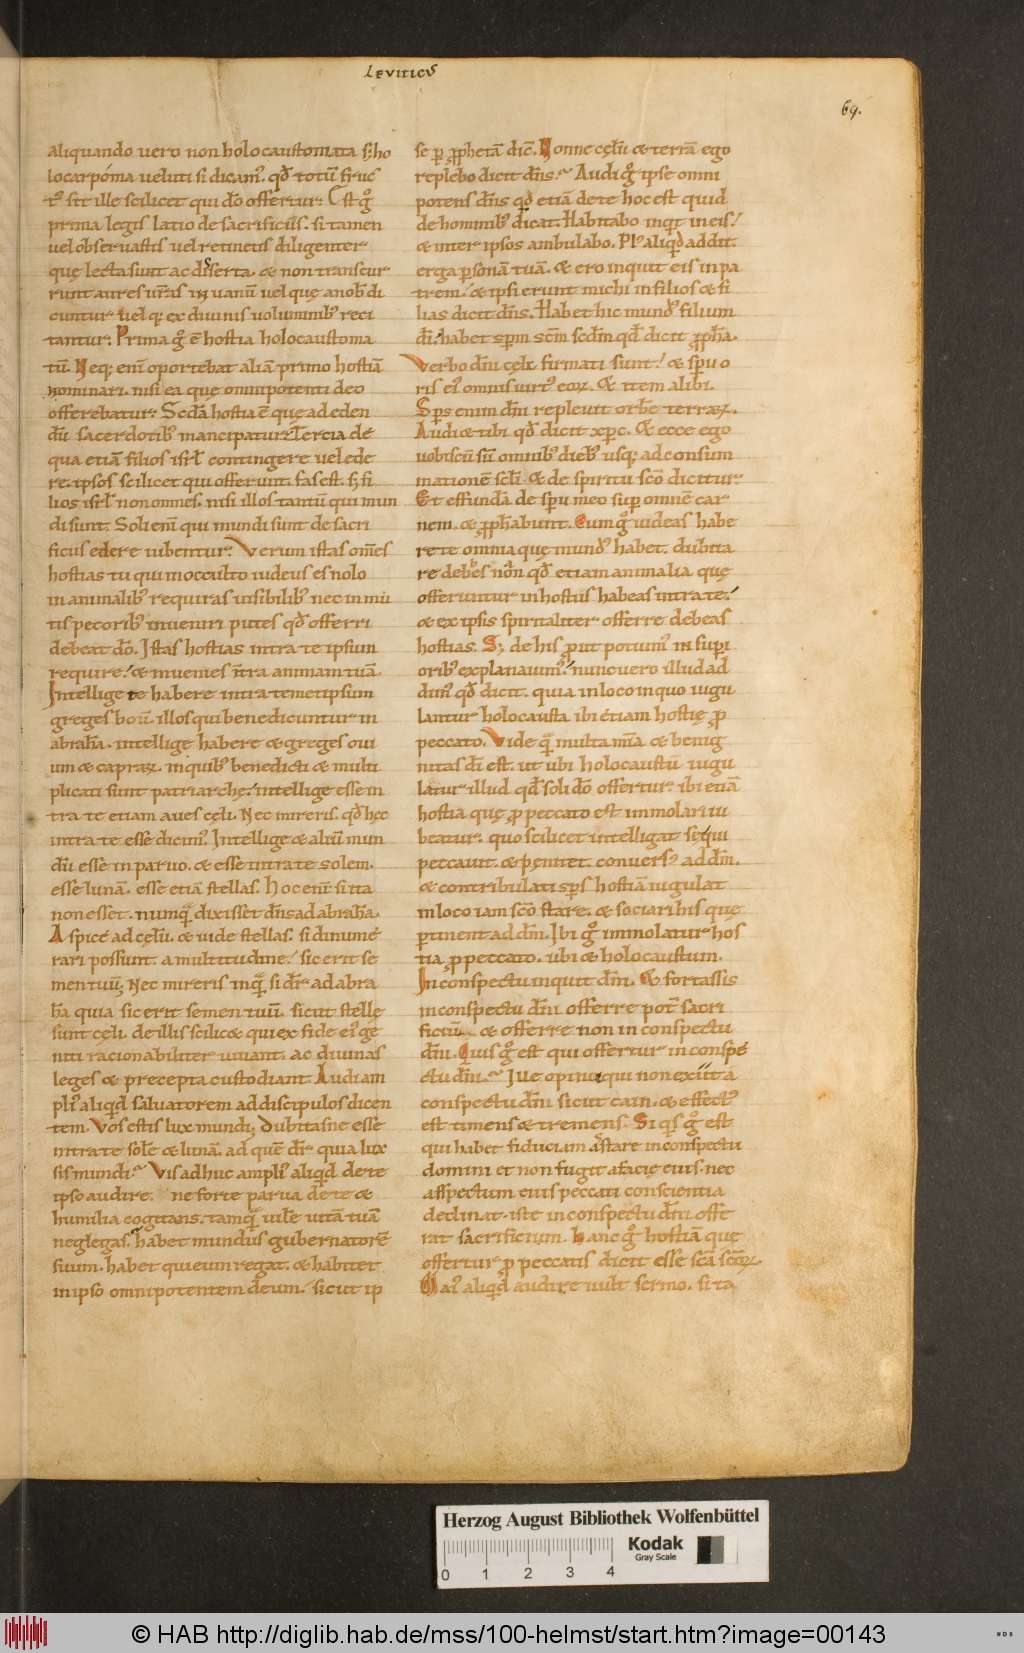 Leviticus
69.
aliquando vero non holocaustomata s; ho
locarpoma veluti si dicam᷒. qđ totū fruc
t᷒ sit ille scilicet qui dō offertur. Est gͦ
prima legis latio de sacrificiis. si tamen
vel observastis vel retinetis diligenter
quę lecta sunt ac diserta. & non transcur
runt aures vr̄as in vanū vel quę a nob᷒ di
cuntur vel q; ex divinis voluminib᷒ reci
tantur. Prima gͦ ē hostia holocaustoma
tū. Neq; eni᷒ oportebat aliā primo hostiā
nominari. nisi ea quę omnipotenti deo
offerebatur. Scđa hostia ē quę ad eden
dū sacerdotib᷒ mancipatur. Tercia de
qua etiā filios isrł contingere vel ede
re. ipsos scilicet qui offerunt. fas est. s; fi
lios isrł non omnes. nisi illos tantū qui mun
di sunt. Soli enī qui mundi sunt de sacri
ficiis edere iubentur. Verum istas om̄es
hostias tu qui in occulto iudeus es nolo
in animalib᷒ requiras visibilib᷒ nec in mu
tis pecorib᷒ inveniri putes qđ offerri
debeat dō. Istas hostias intra te ipsum
require. & invenies intra animam tuā.
Intellige te habere intra temetipsum
greges boū. illos qui benedicuntur in
abrahā. intellige habere & greges ovi
um & caprarꝝ. in quib᷒ benedicti & multi
plicati sunt patriarchę. intellige esse in
tra te etiam aves cęli. Nec mireris. qđ hęc
intra te esse dicim᷒. Intellige & aliū mun
dū esse in parvo. & esse intra te solem.
esse lunā. esse etiā stellas. Hoc enī si ita
non esset. numquā dixisset dn̄s ad abrahā.
Aspice ad cęlū. & vide stellas. si dinume
rari possunt a multitudine. sic erit se
men tuū; Nec mireris inquā si dr̄ ad abra
hā quia sic erit semen tuū. sicut stellę
sunt cęli. de illis scilic& qui ex fide ei᷒ ge
niti racionabiliter vivant. ac divinas
leges & precepta custodiant. Audi am
pli᷒ aliqđ salvatorem ad discipulos dicen
tem. Vos estis lux mundi; Dubitas ne esse
intra te solē & lunā. ad quē dr̄ quia lux
sis mundi. Vis adhuc ampli᷒ aliqđ de te
ipso audire. ne forte parva de te &
humilia cogitans. tamquā vilē vitā tuā
neglegas. habet mundus gubernatorē
suum. habet qui eum regat. & habitet
in ipso omnipotentem deum. sicut ip
se ꝑ ꝓphetā dic̄. Nonne cęlū & terrā ego
replebo dicit dn̄s. Audi gͦ ipse omni
potens dn̄s qđ etiā de te hoc est quid
de hominib᷒ dicat. Habitabo inqt̄ in eis.
& inter ipsos ambulabo. Pl᷒ aliqđ addit.
erga personā tuā. & ero inquit eis in pa
trem. & ipsi erunt michi in filios & fi
lias dicit dn̄s. Habet hic mund᷒ filium
dī. habet spm̄ scm̄ scđm qđ dicit ꝓpha.
Verbo dn̄i cęli firmati sunt. & spū o
ris ei᷒ omnis virt᷒ eoꝝ. & item alibi.
Sps̄ enim dn̄i replevit orbē terrarꝝ.
Audi & tibi qđ dicit xpc̄. & ecce ego
vobiscū sū omnib᷒ dieb᷒ usq; ad consum
mationē scl̄i. & de spiritu scō dicitur
Et effundā de spū meo sup omnē car
nem. & ꝓphabunt. Cum gͦ videas habe
re te omnia quę mund᷒ habet. dubita
re debes non qđ etiam animalia quę
offeruntur in hostiis habeas intra te.
& ex ipsis spiritaliter offerre debeas
hostias. S; de his ꝓut potuim᷒ in supi
orib᷒ explanavim᷒. nunc vero illud ad
dim᷒ qđ dicit. quia in loco in quo iugu
lantur holocausta ibi etiam hostię ꝓ
peccato. Vide quā multa mīa & benig
nitas dī est. ut ubi holocaustū iugu
latur illud. qđ soli dō offertur. ibi etiā
hostia quę ꝓ peccato est immolari iu
beatur. quo scilicet intelligat se qui
peccavit. & pęnitet. convers᷒ ad dm̄.
& contribulati sps̄ hostiā iugulat
in loco iam scō stare. & sociari his quę
ꝑtinent ad dm̄. Ibi gͦ immolatur hos
tia ꝓ peccato. ubi & holocaustum.
In conspectu inquit dn̄i. & fortassis
in conspectu dn̄i offerre pot̄ sacri
ficiū. & offerre non in conspectu
dn̄i. Quis gͦ est qui offertur in conspe
ctu dn̄i. Ille opinor qui non exiit a
conspectu dn̄i sicut cain. & effect᷒
est timens & tremens. Si qs gͦ est
qui habet fiduciam astare in conspectu
domini et non fugit a facię eius. nec
asspectum eius peccati conscientia
declinat. iste in conspectu dn̄i offe
rat sacrificium. hanc gͦ hostiā quę
offertur ꝓ peccatis dicit esse scā scōꝝ.
Mai᷒ aliqđ audire vult sermo. si ta
Herzog August Bibliothek Wolfenbüttel
Kodak
Gray Scale
0 1 2 3 4
© HAB http://diglib.hab.de/mss/100-helmst/start.htm?image=00143